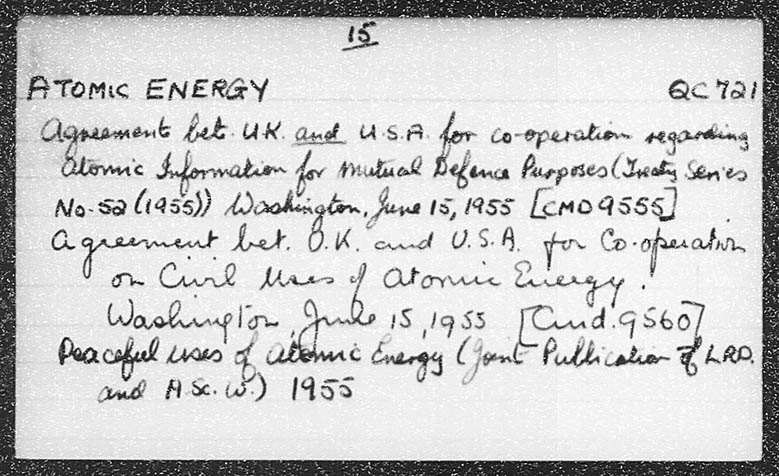 15
ATOMIC ENERGY QC 721
Agreement bet. U.K. and U.S.A. for co-operation regarding
Atomic Information for Mutual Defence Purposes (Treaty Series
No. 52 (1955)) Washington, June 15, 1955 [CMD 9555]
Agreement bet. U.K. and U.S.A. for Co-operation
on Civil Uses of Atomic Energy.
Washington, June 15, 1955 [Cmd. 9560]
Peaceful uses of Atomic Energy (Joint Publication of L.R.D.
and A.Sc.W.) 1955